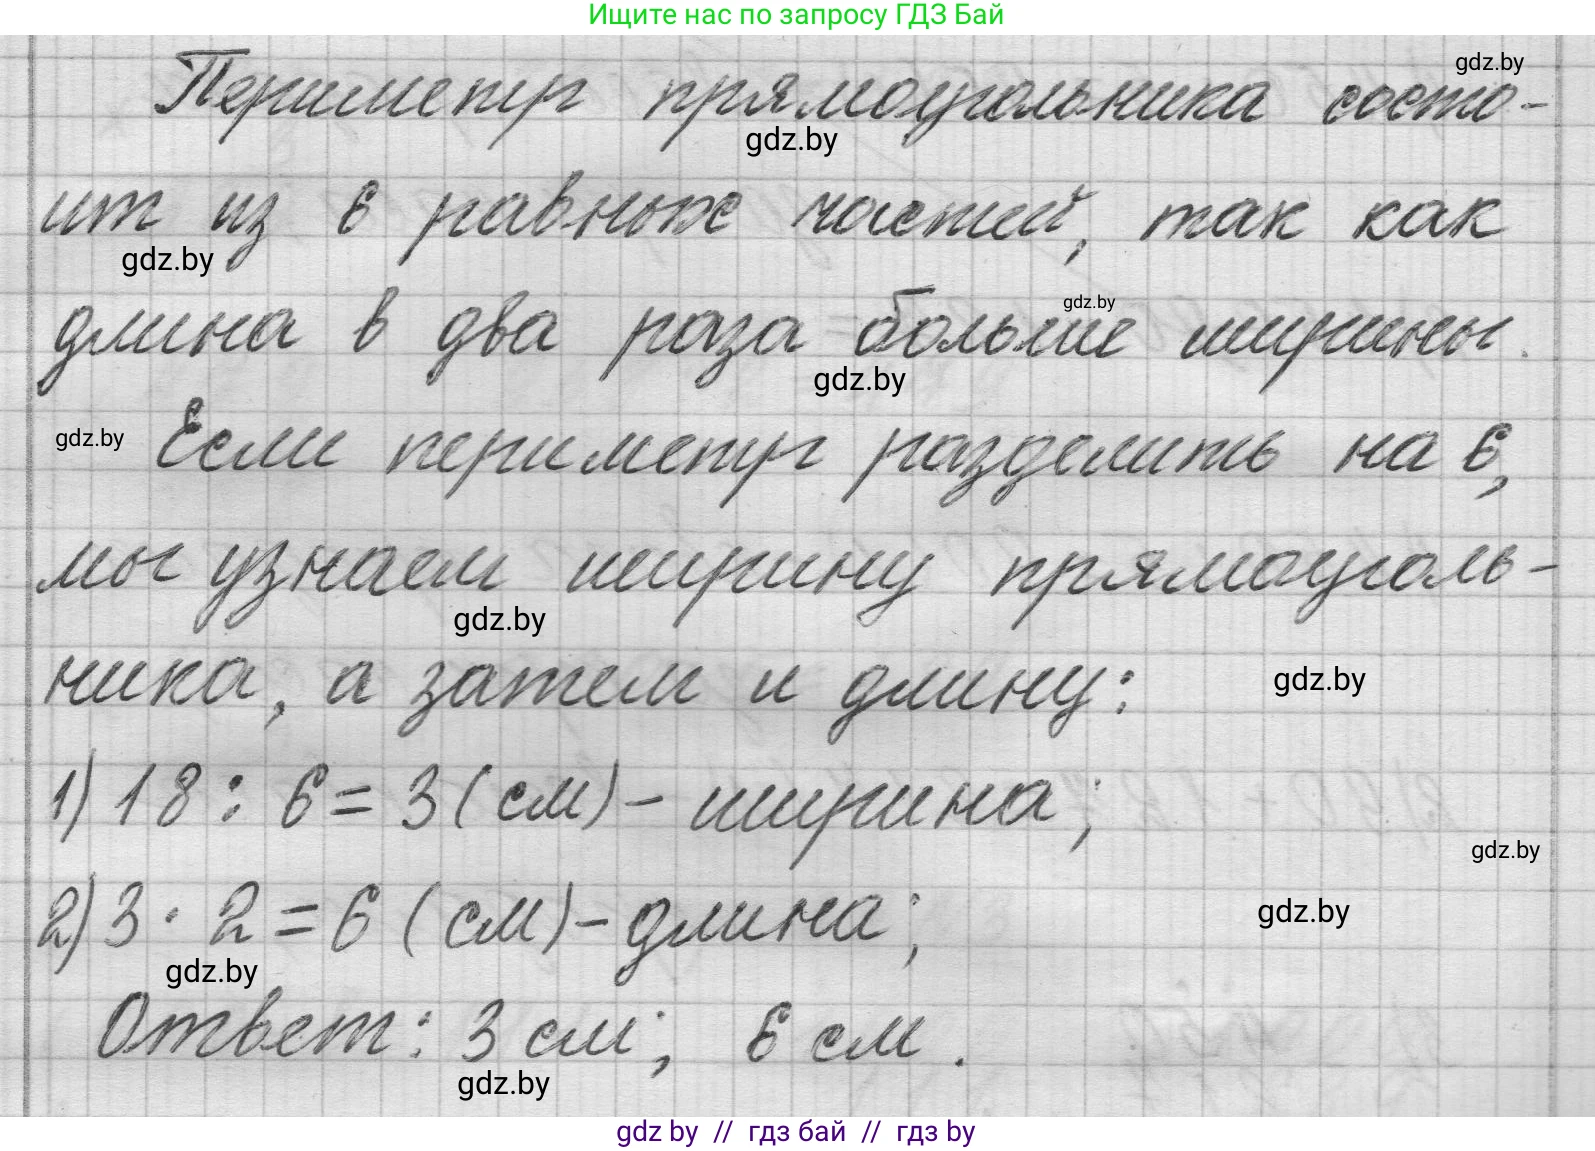 Ищите нас по запросу ГДЗ Бай
gdz.by
Периметр прямоугольника состо-
gdz.by
ит из 6 равных частей, так как
gdz.by
gdz.by
длина в два раза больше ширины.
gdz.by
gdz.by
Если периметр разделить на 6,
мы узнаем ширину прямоуголь-
gdz.by
ника, а затем и длину:
gdz.by
1) 18 : 6 = 3 (см) – ширина;
gdz.by
2) 3 · 2 = 6 (см) – длина;
gdz.by
gdz.by
Ответ: 3 см; 6 см.
gdz.by
gdz by // гдз бай // гдз by